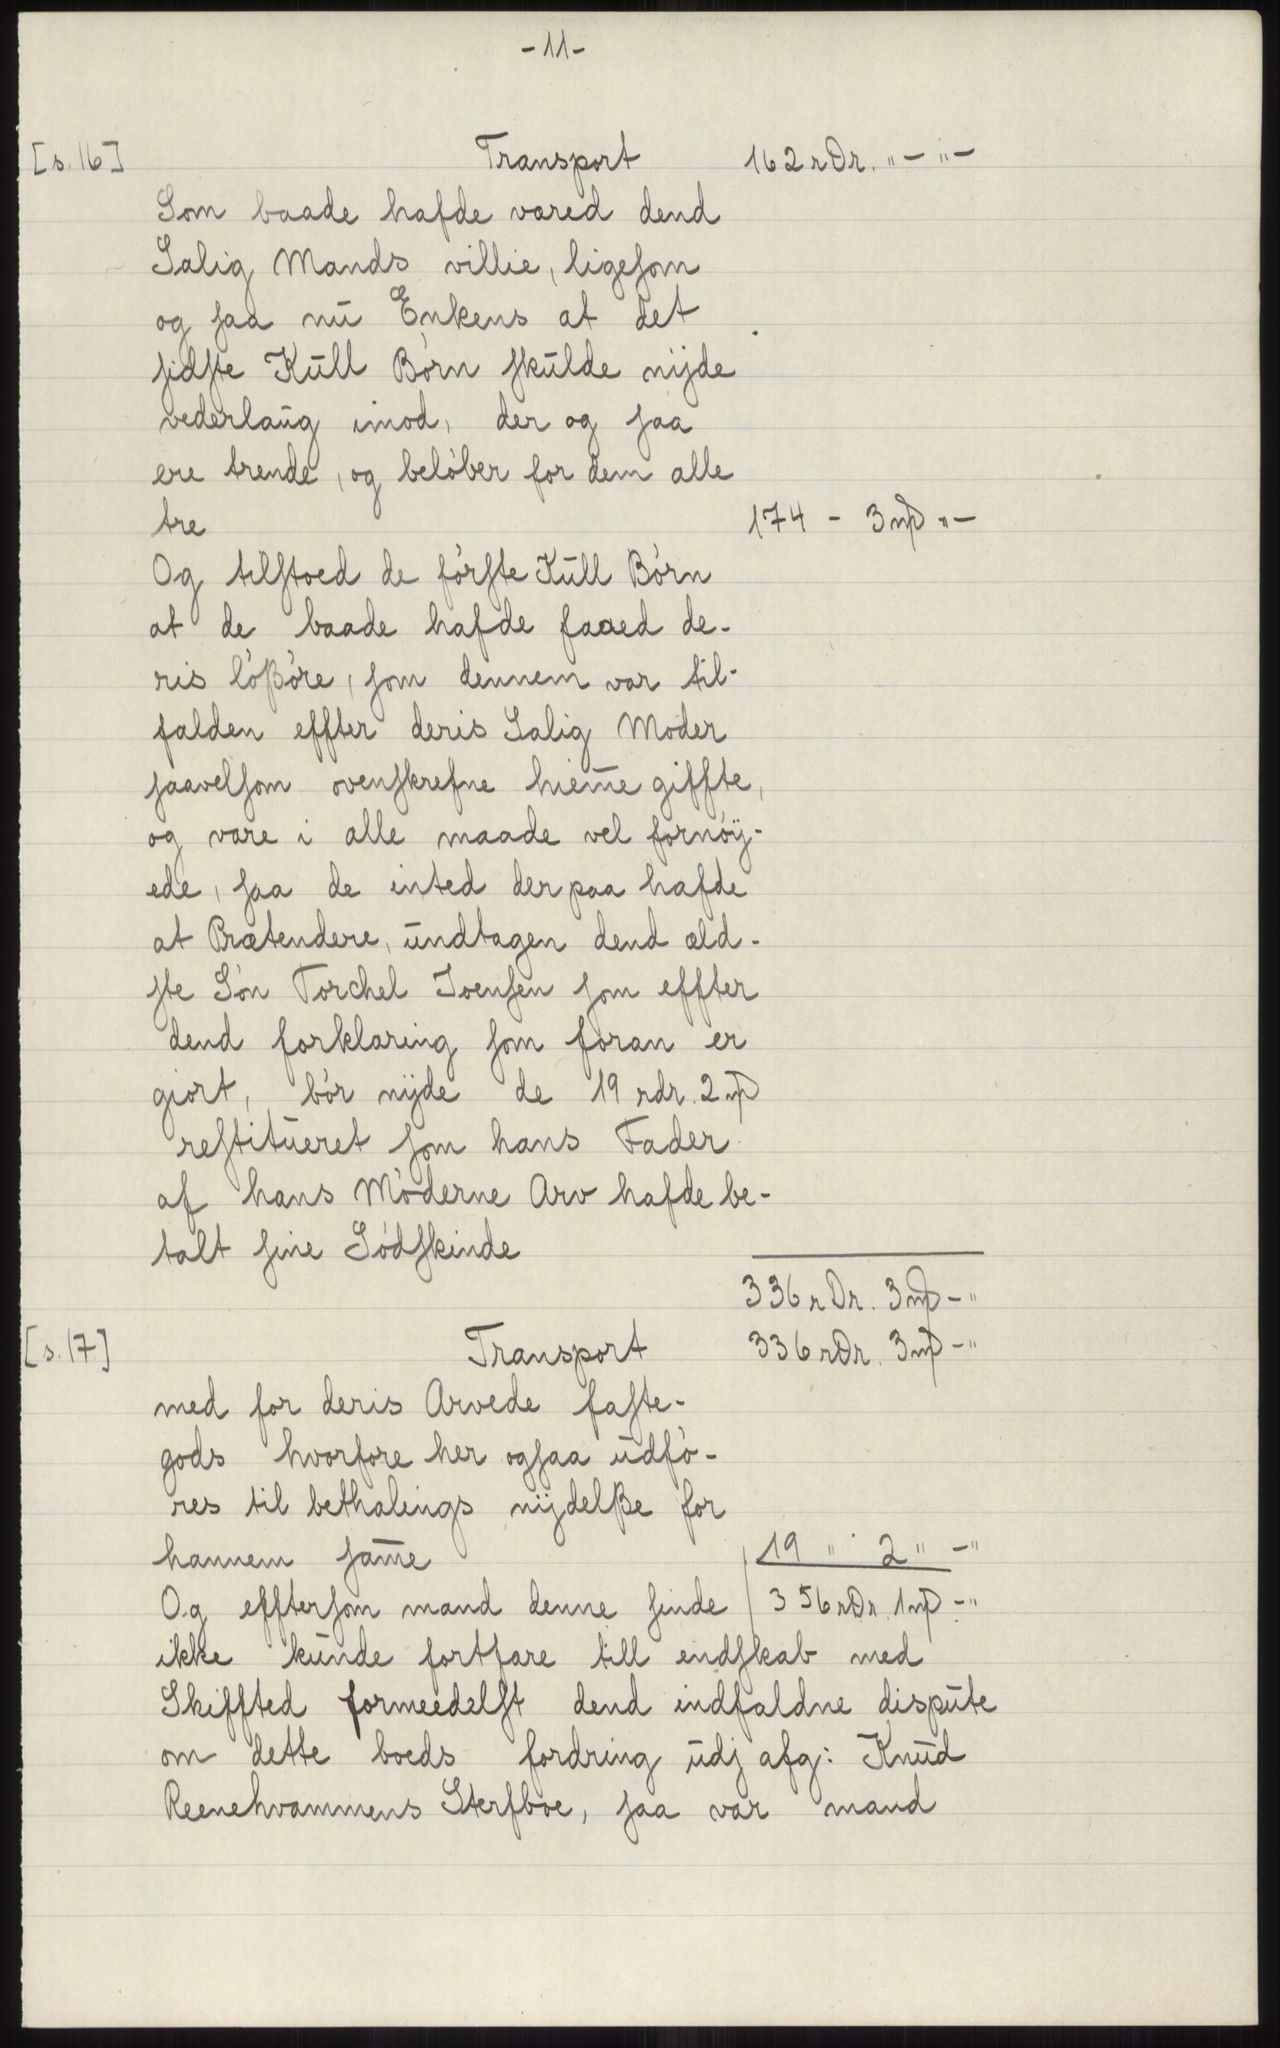 -11-
[s. 16] Transport 162 rDr. " - " -
Som baade hafde vared dend
Salig Mands villie, ligesom
og saa nu Enkens at det
sidste Kull Børn skulde nijde
vederlaug imod, der og saa
ere trende, og beløber for dem alle
tre 174 - 3 mꝑ " -
Og tilstoed de første Kull Børn
at de baade hafde faaed de-
ris løßøre, som dennem var til-
falden effter deris Salig Moder
saavelsom ovenskrefne hiem̅e giffte,
og vare i alle maade vel fornøÿ-
ede, saa de inted der paa hafde
at Prætendere, undtagen dend æld-
ste Søn Torchel Joensen som effter
dend forklaring som foran er
giort, bør nijde de 19 rdr. 2 mꝑ
restitueret som hans Fader
af hans Møderne Arv hafde be-
talt sine Sødskinde
336 rDr. 3 mꝑ - "
[s. 17] Transport 336 rDr. 3 mꝑ - "
med for deris Arvede faste-
gods hvorfore her ogsaa udfø-
res til bethalings nijdelße for
hannem sam̅e 19 " 2 " - "
Og efftersom mand denne sinde 356 rDr. 1 mꝑ - "
ikke kunde fortfare till endskab med
Skiffted formeedelst dend indfaldne dispute
om dette boeds fordring udj afg: Knud
Reenehvammens Sterfboe, saa var mand